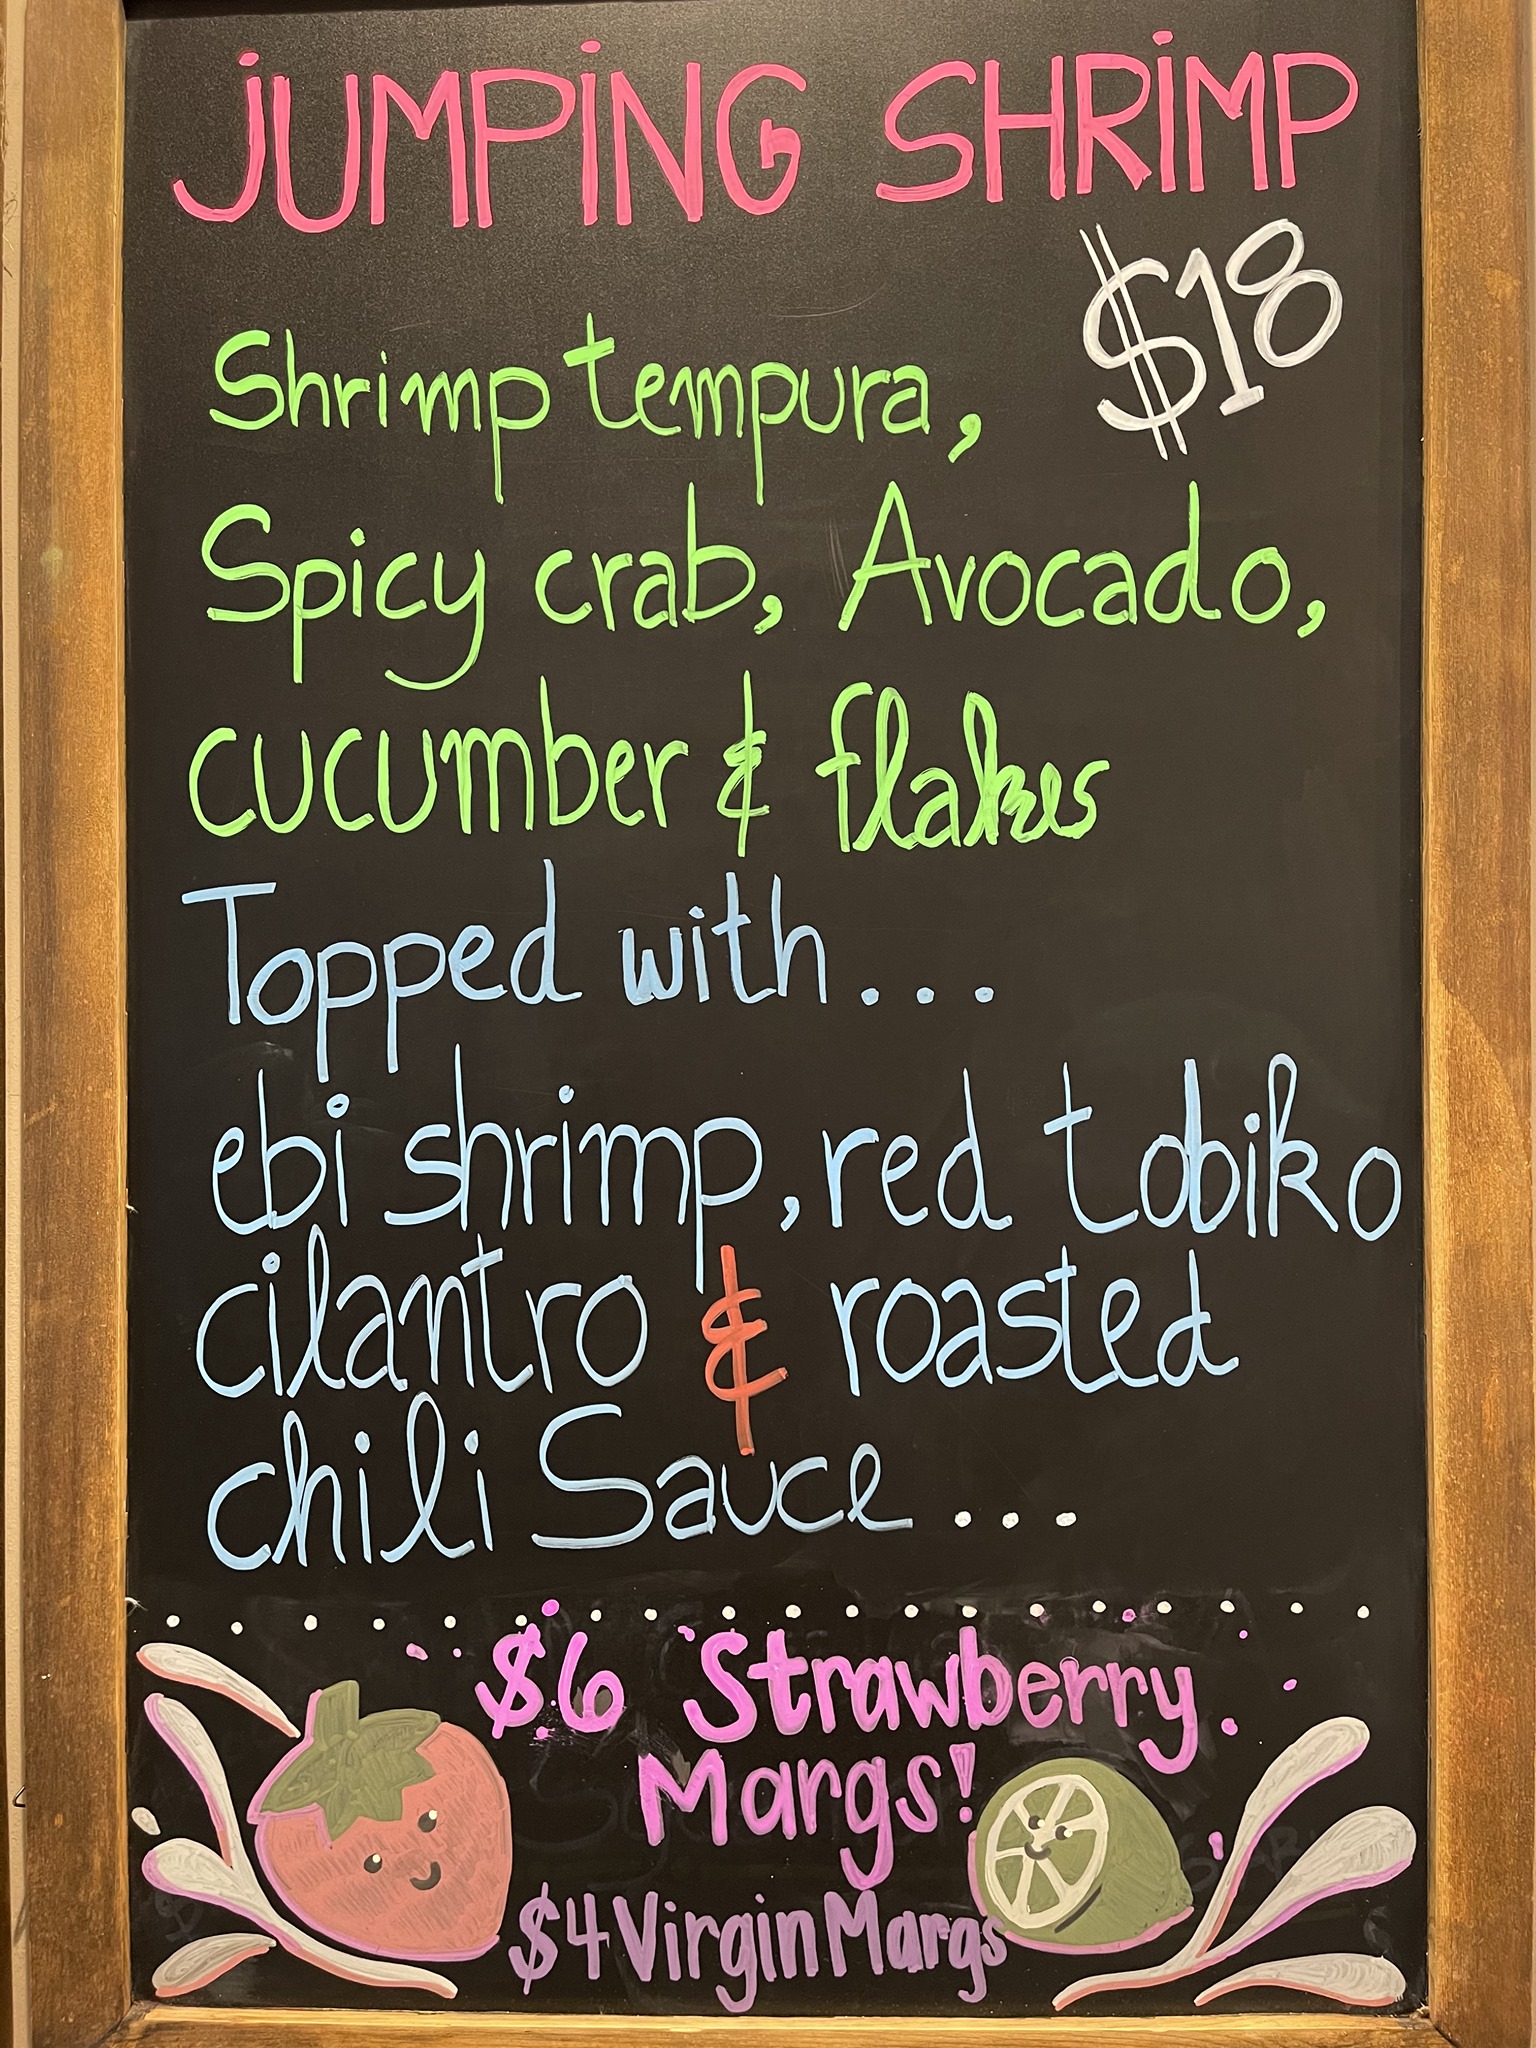 JUMPING SHRIMP
$18
Shrimp tempura,
Spicy crab, Avocado,
cucumber & flakes
Topped with...
ebi shrimp, red tobiko
cilantro & roasted
chili Sauce...
$6 Strawberry
Margs!
$4 Virgin Margs